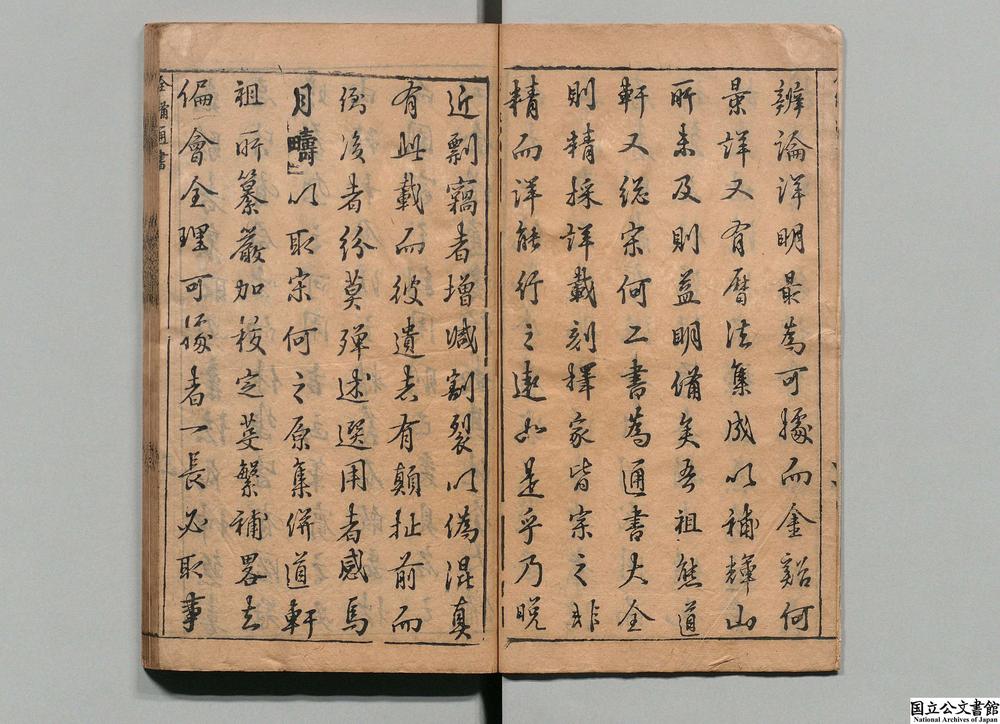 辨論詳明最為可據而金谿何
景祥又有曆法集成以補輝山
所未及則益明備矣吾祖熊道
軒又総宗何二書為通書大全
則精採詳載刻擇家皆宗之非
精而詳能行之遠如是乎乃晩
近剽竊者増减割裂以偽混真
有此載而彼遺者有顛扯前而
後者紛莫殫述選用者惑焉
月疇以取宋何之原集併道軒
祖所纂嚴加校定芟繁補畧去
偏會全理可依者一長必取事
全備通書
国立公文書館
National Archives of Japan